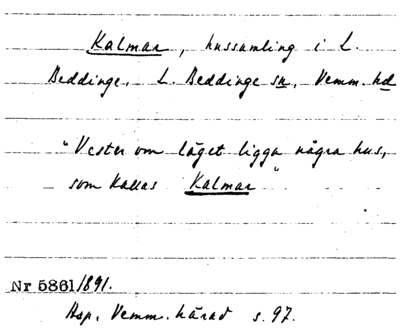 Kalmar, hussamling i L.
Beddinge, L. Beddinge sn, Vemm. hd
"Vester om läget ligga några hus,
som kallas Kalmar"
Nr 5861/1891.
Hsp. Vemm. härad s. 97.